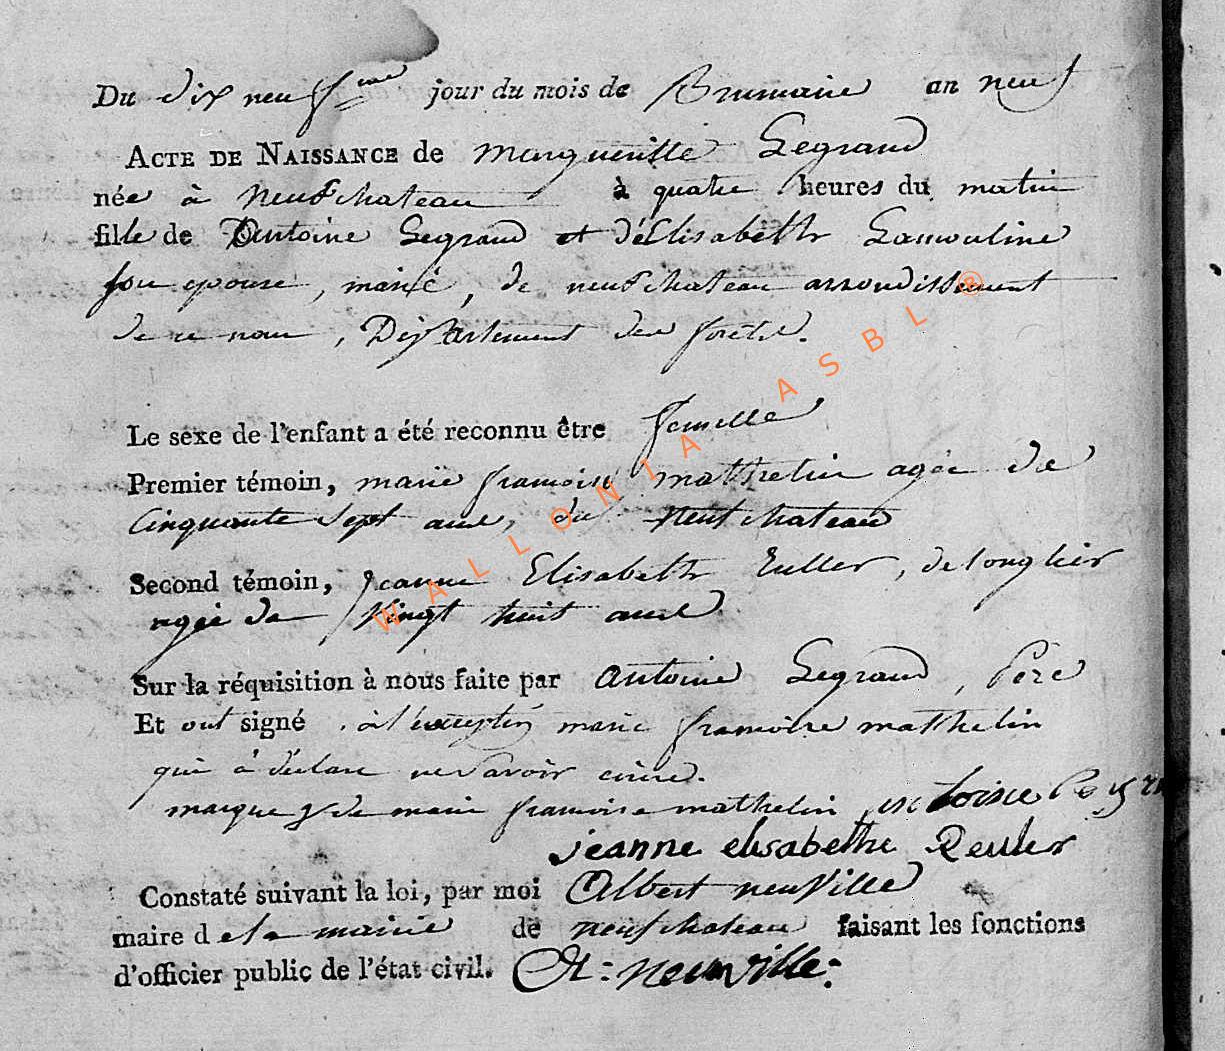 Du dix neufme jour du mois de Brumaire an neuf
ACTE DE NAISSANCE de Margueritte Legrand
née à Neufchateau à quatre heures du matin
fille de Antoine Legrand et d'Elisabeth Lamouline
son epouse, marié, de neufchateau arrondissement
de ce nom, Département des forêts.
Le sexe de l'enfant a été reconnu être femelle
Premier témoin, marie francoise mathelin agée de
Cinquante Sept ans, du Neufchateau
Second témoin, Jeanne Elisabeth Culler, de longlier
agée de Vingt huit ans
Sur la réquisition à nous faite par Antoine Legrand, Pére
Et ont signé, à l'exception marie francoise matthelin
qui à déclaré ne savoir écrire.
marque + de marie francoise mathelin antoine
jeanne elisabethe Reuler
Constaté suivant la loi, par moi Albert neuville
maire de la mairie de neufchateau faisant les fonctions
d'officier public de l'état civil. At: neuville:
WALLONIA ASBL ®